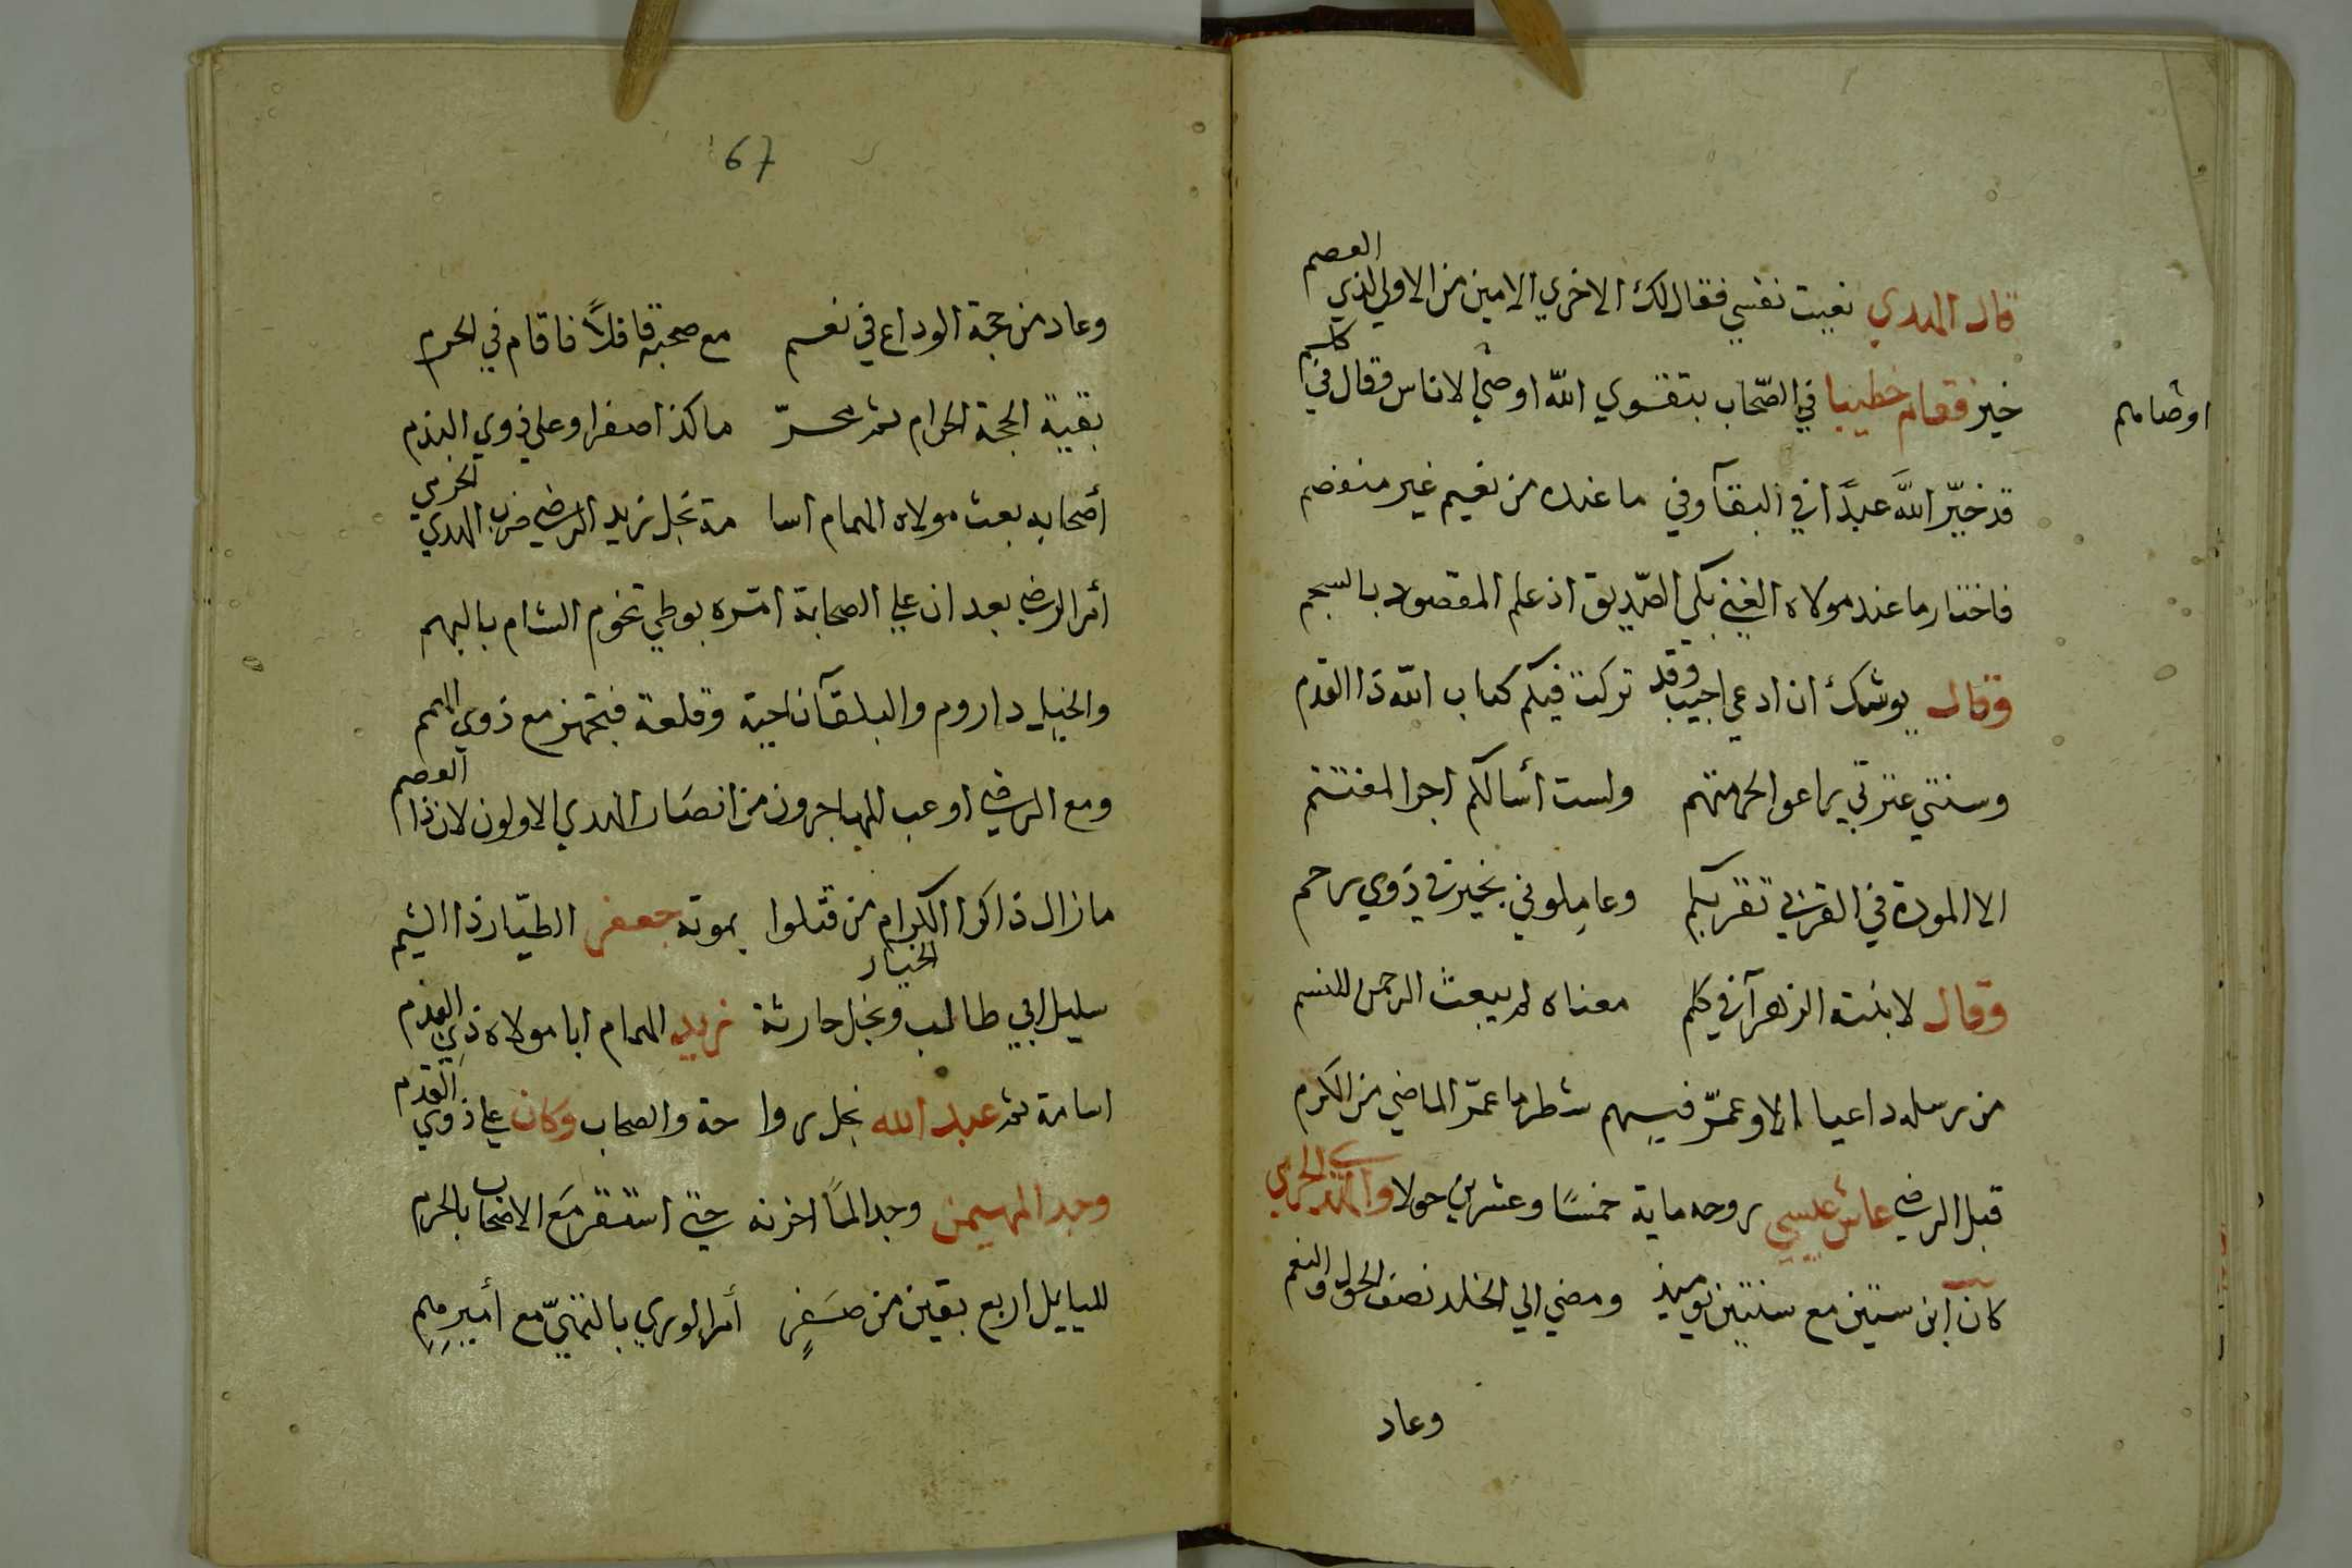 قال الهدي نعيت نفسي فقال لك الاخري الامين من الاولي لذي العصم
خير فقام خطيبا في الصّحاب بتقوي الله اوصي الاناس وقال في كلم
اوصاهم
قد خيّر اللّه عبدًا في البقآ وفي ما عنده من نعيم غير منفصم
فاختار ما عند مولاه الغني بكي الصّديق اذ علم المقصود بالسجم
وقال يوشك ان ادعي اجيب وقد تركت فيكم كتاب الله ذا القدم
وسنتي عترتي يراعوا لحرمتهم ولست أسالكم اجرا لمغتنم
الا المودة في القربي تقربكم وعاملوني بخير في ذوي رحم
وقال لابنته الزهرآ في كلم معناه لم يبعث الرحمن للنسم
من رسله داعيا الا وعمّر فيهم شطر ما عمّر الماضي من الكرم
قبل الرضي عاش عيسي روحه ماية خمسًا وعشرين حولا والهدي الحرمي
كان ابن ستين مع سنتين يوميذ ومضي الي الخلد نصف الحول والنعم
وعاد
67
وعاد من حجة الوداع في نعم مع صحبه قافلاً فاقام في الحرم
بقية الحجة الحرام ثم محرّ ما كذا صفرا وعلي ذوي البذم
أصحابه بعث مولاه الهمام اسا مة نجل زيد الرضي من الهدي الحرمي
أمر الرضي بعد ان علي الصحابة امّره بوطي تخوم الشام بالبهم
والخيل داروم والبلقآ ناحية وقلعة فتجهز مع ذوي الهمم
ومع الرضي اوعب المهاجرون من انصار الهدي الاولون لان ذا العصم
ما زال ذاكرا الكرام من قتلوا بموته جعفر الطيّار ذا الشيم
سليل ابي طالب ونجل حارثة الخيار زيد الهمام ابا مولاه ذي القدم
اسامة ثم عبد الله نجل روا حة والصحاب وكان علي ذوي القدم
وجد المهيمن وجدا لمّا احزنه حتي استقر مع الاصحاب بالحرم
لليايل اربع بقين من صفرٍ أمر الوري بالتهيّ مع أميرهم